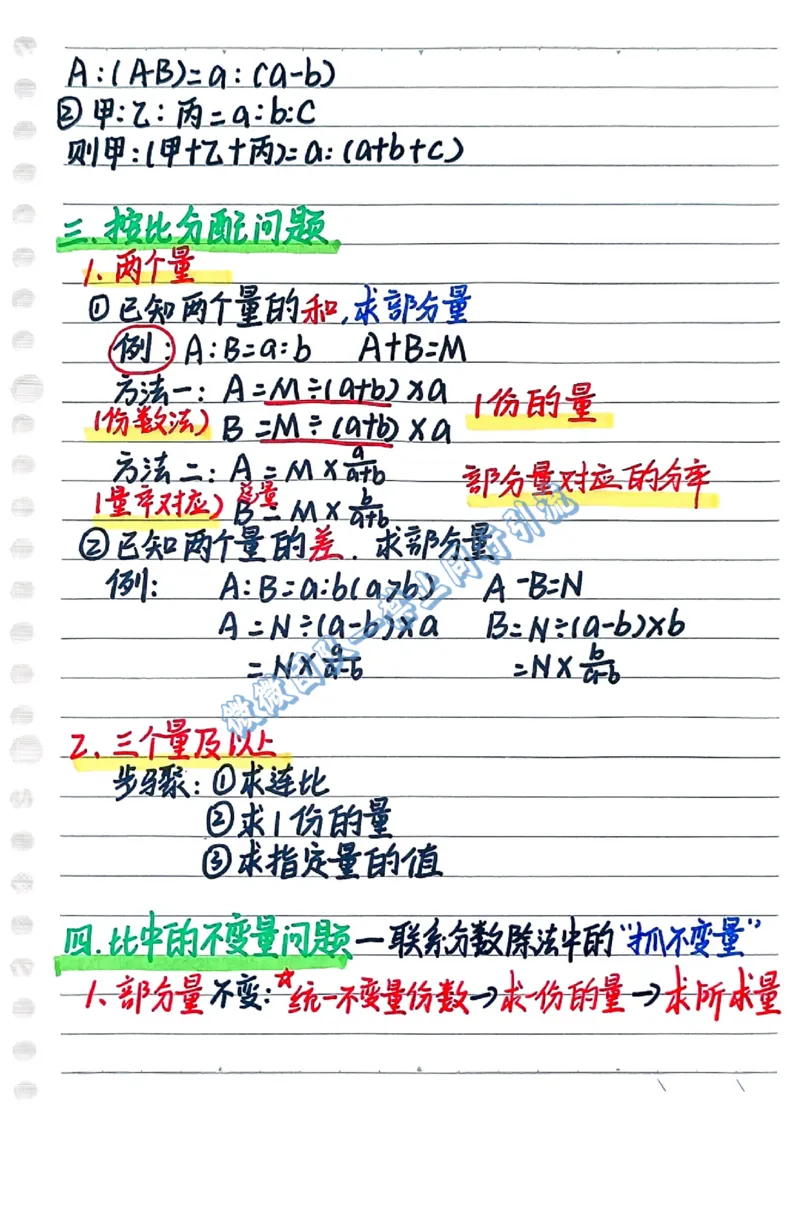 A:(A-B)=a:(a-b)
②甲:乙:丙=a:b:C
则甲:(甲+乙+丙)=a:(a+b+c)
三.按比分配问题
1.两个量
①已知两个量的和,求部分量
例:A:B=a:b A+B=M
方法一:A=M÷(a+b)×a 1份的量
(份数法) B=M÷(a+b)×a
方法二:A=M×a/a+b 部分量对应的分率
(量率对应) 总量 B=M×b/a+b
②已知两个量的差.求部分量
例: A:B=a:b(a>b) A-B=N
A=N÷(a-b)×a B=N÷(a-b)×b
=N×a/a-b =N×b/a-b
2.三个量及以上
步骤:①求连比
②求1份的量
③求指定量的值
四.比中的不变量问题—联系分数除法中的“抓不变量”
1.部分量不变:☆统一不变量份数→求一份的量→求所求量